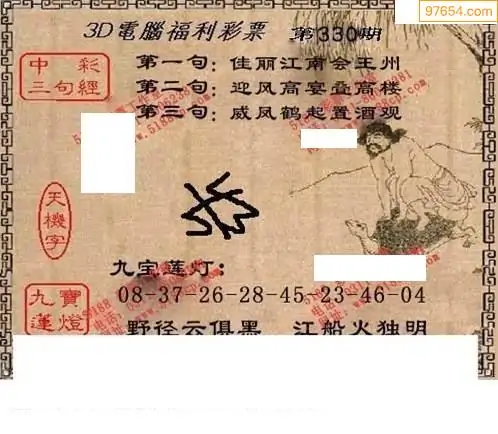 97654.com
3D電腦福利彩票 第330期
中彩
三句經
第一句：佳丽江南会王州
第二句：迎风高宴叠高楼
第三句：威凤鹤起置酒观
天機字
九宝莲灯：
九寶
蓮燈
08-37-26-28-45 23-46-04
野径云俱黑 江船火独明